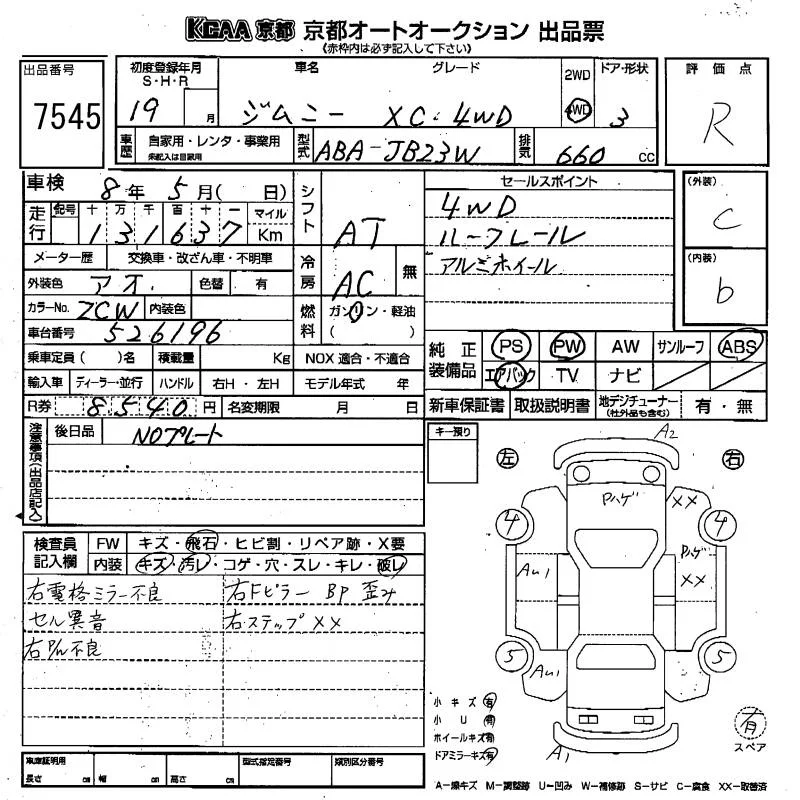 KCAA 京都 京都オートオークション 出品票
《赤枠内は必ず記入して下さい》
出品番号
7545
初度登録年月
S・H・R
19 月
車名 グレード
ジムニー XC・4WD
2WD
4WD
ドア・形状
3
評価点
R
車歴
自家用・レンタ・事業用
未記入は自家用
型式
ABA-JB23W
排気
660 CC
車検 8年 5月( 日)
走行 記号 十 万 千 百 十 一 マイル
131637 Km
メーター歴 交換車・改ざん車・不明車
外装色 アオ. 色替 有
カラーNo. ZCW 内装色
車台番号 526196
乗車定員( )名 積載量 Kg NOX適合・不適合
輸入車 ディーラー・並行 ハンドル 右H・左H モデル年式 年
R券 8540円 名変期限 月 日
シフト AT
冷房 AC 無
燃料 ガソリン・軽油
( )
セールスポイント
4WD
ルーフレール
アルミホイール
(外装)
C
(内装)
b
純正装備品 PS PW AW サンルーフ ABS
エアバック TV ナビ
新車保証書 取扱説明書 地デジチューナー(社外品も含む) 有・無
注意事項(出品店記入)
後日品 NOプレート
キー預り
左 右
A2
Pハゲ XX
4 4
Pハゲ
XX
Au1
5 5
Au1
A1
検査員記入欄
FW キズ・飛石・ヒビ割・リペア跡・X要
内装 キズ・汚レ・コゲ・穴・スレ・キレ・破レ
右電格ミラー不良 右Fピラー BP 歪み
セル異音 右ステップXX
右P/W不良
小キズ 有
小U 有
ホイールキズ 有
ドアミラーキズ 有
有
スペア
車庫証明用
長さ cm 幅 cm 高さ cm
型式指定番号 類別区分番号
A-線キズ M-調整跡 U-凹み W-補修跡 S-サビ C-腐食 XX-取替済